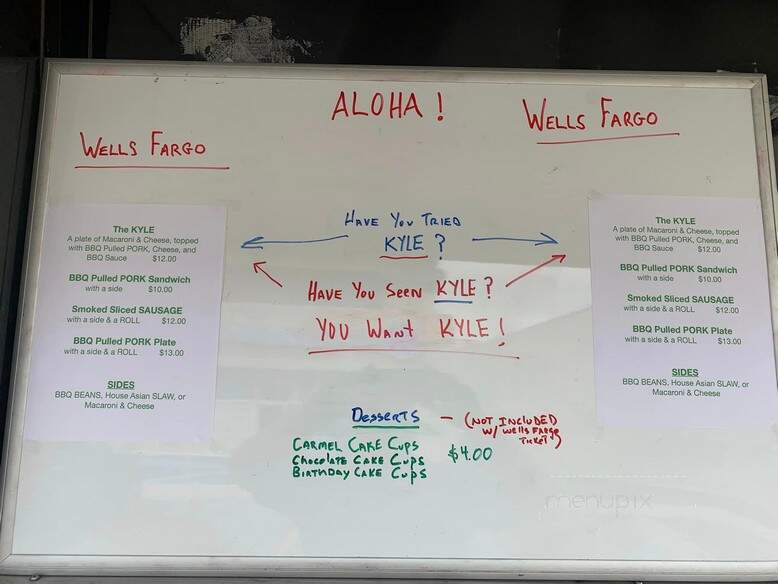 ALOHA!
WELLS FARGO
WELLS FARGO
The KYLE
A plate of Macaroni & Cheese, topped
with BBQ Pulled PORK, Cheese, and
BBQ Sauce $12.00
BBQ Pulled PORK Sandwich
with a side $10.00
Smoked Sliced SAUSAGE
with a side & a ROLL $12.00
BBQ Pulled PORK Plate
with a side & a ROLL $13.00
SIDES
BBQ BEANS, House Asian SLAW, or
Macaroni & Cheese
HAVE YOU TRIED
KYLE?
HAVE YOU SEEN KYLE?
YOU WANT KYLE!
The KYLE
A plate of Macaroni & Cheese, topped
with BBQ Pulled PORK, Cheese, and
BBQ Sauce $12.00
BBQ Pulled PORK Sandwich
with a side $10.00
Smoked Sliced SAUSAGE
with a side & a ROLL $12.00
BBQ Pulled PORK Plate
with a side & a ROLL $13.00
SIDES
BBQ BEANS, House Asian SLAW, or
Macaroni & Cheese
DESSERTS - (NOT INCLUDED
W/ Wells FARGO
TICKET)
CARMEL CAKE CUPS
CHOCOLATE CAKE CUPS $4.00
BIRTHDAY CAKE CUPS
menupix